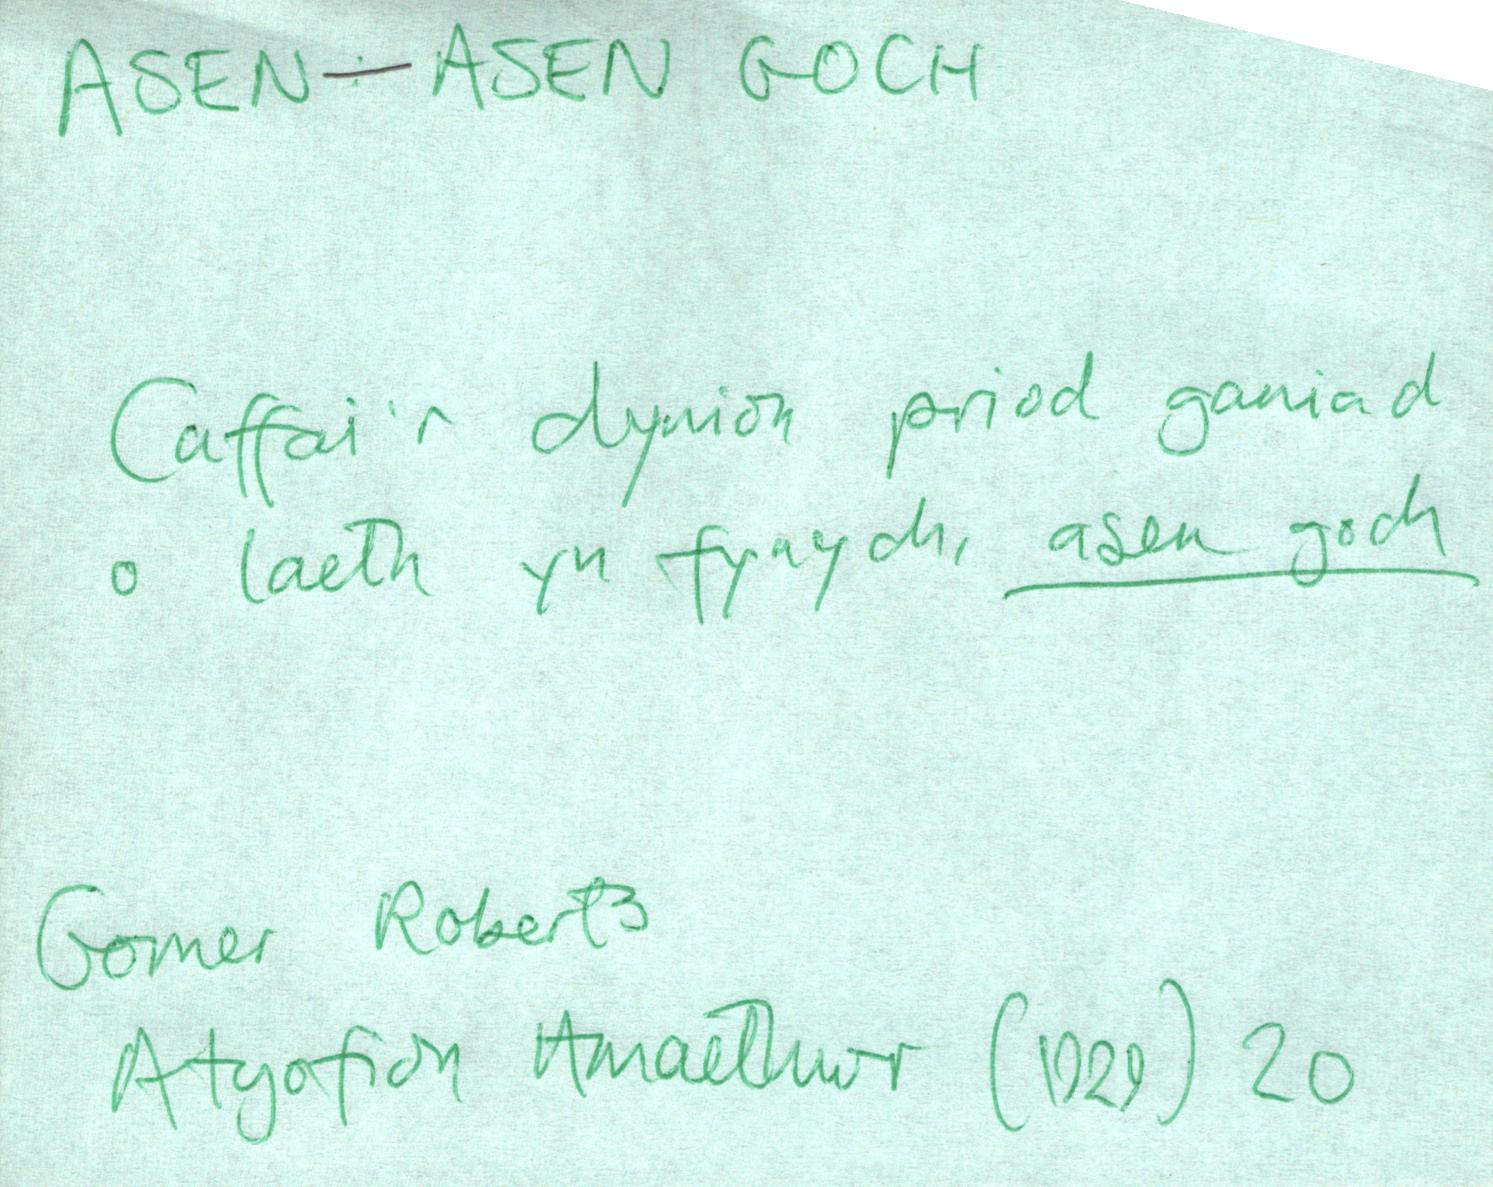 ASEN — ASEN GOCH
Caffai'r dynion priod ganiad
o laeth yn fynych, asen goch
Gomer Roberts
Atgofion Amaethwr (1929) 20